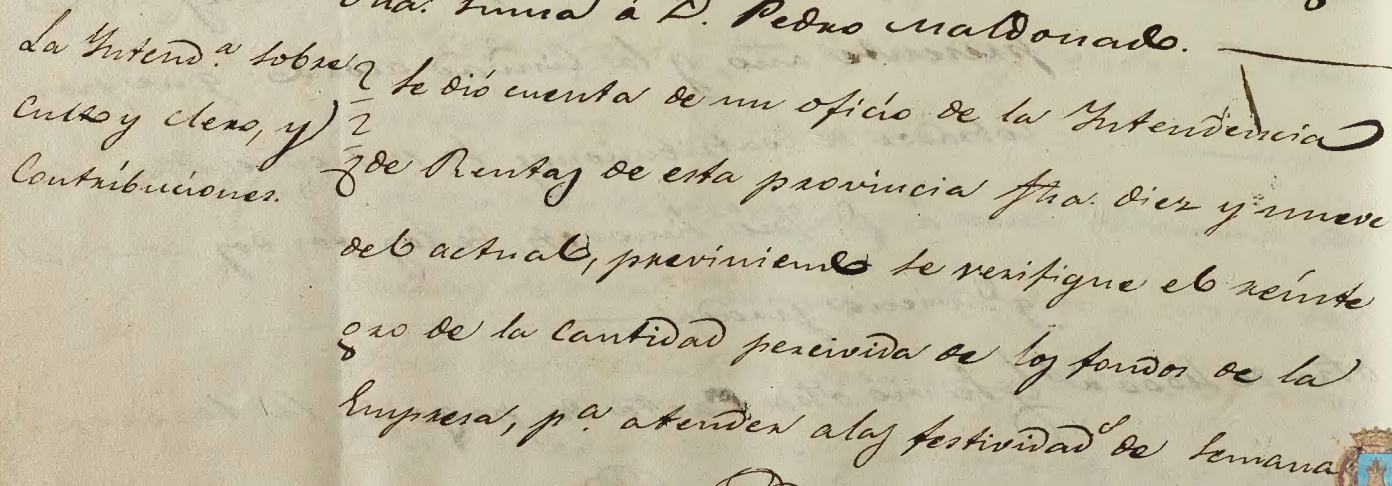 suma á D. Pedro Maldonado.
La Intend.ª sobre
Culto y clero, y
Contribuciones.
Se dió cuenta de un oficio de la Intendencia
de Rentas de esta provincia fha. diez y nueve
del actual, previniendo se verifique el reinte
gro de la Cantidad percivida de los fondos de la
Empresa, p.ª atender alas festividad.s de Semana